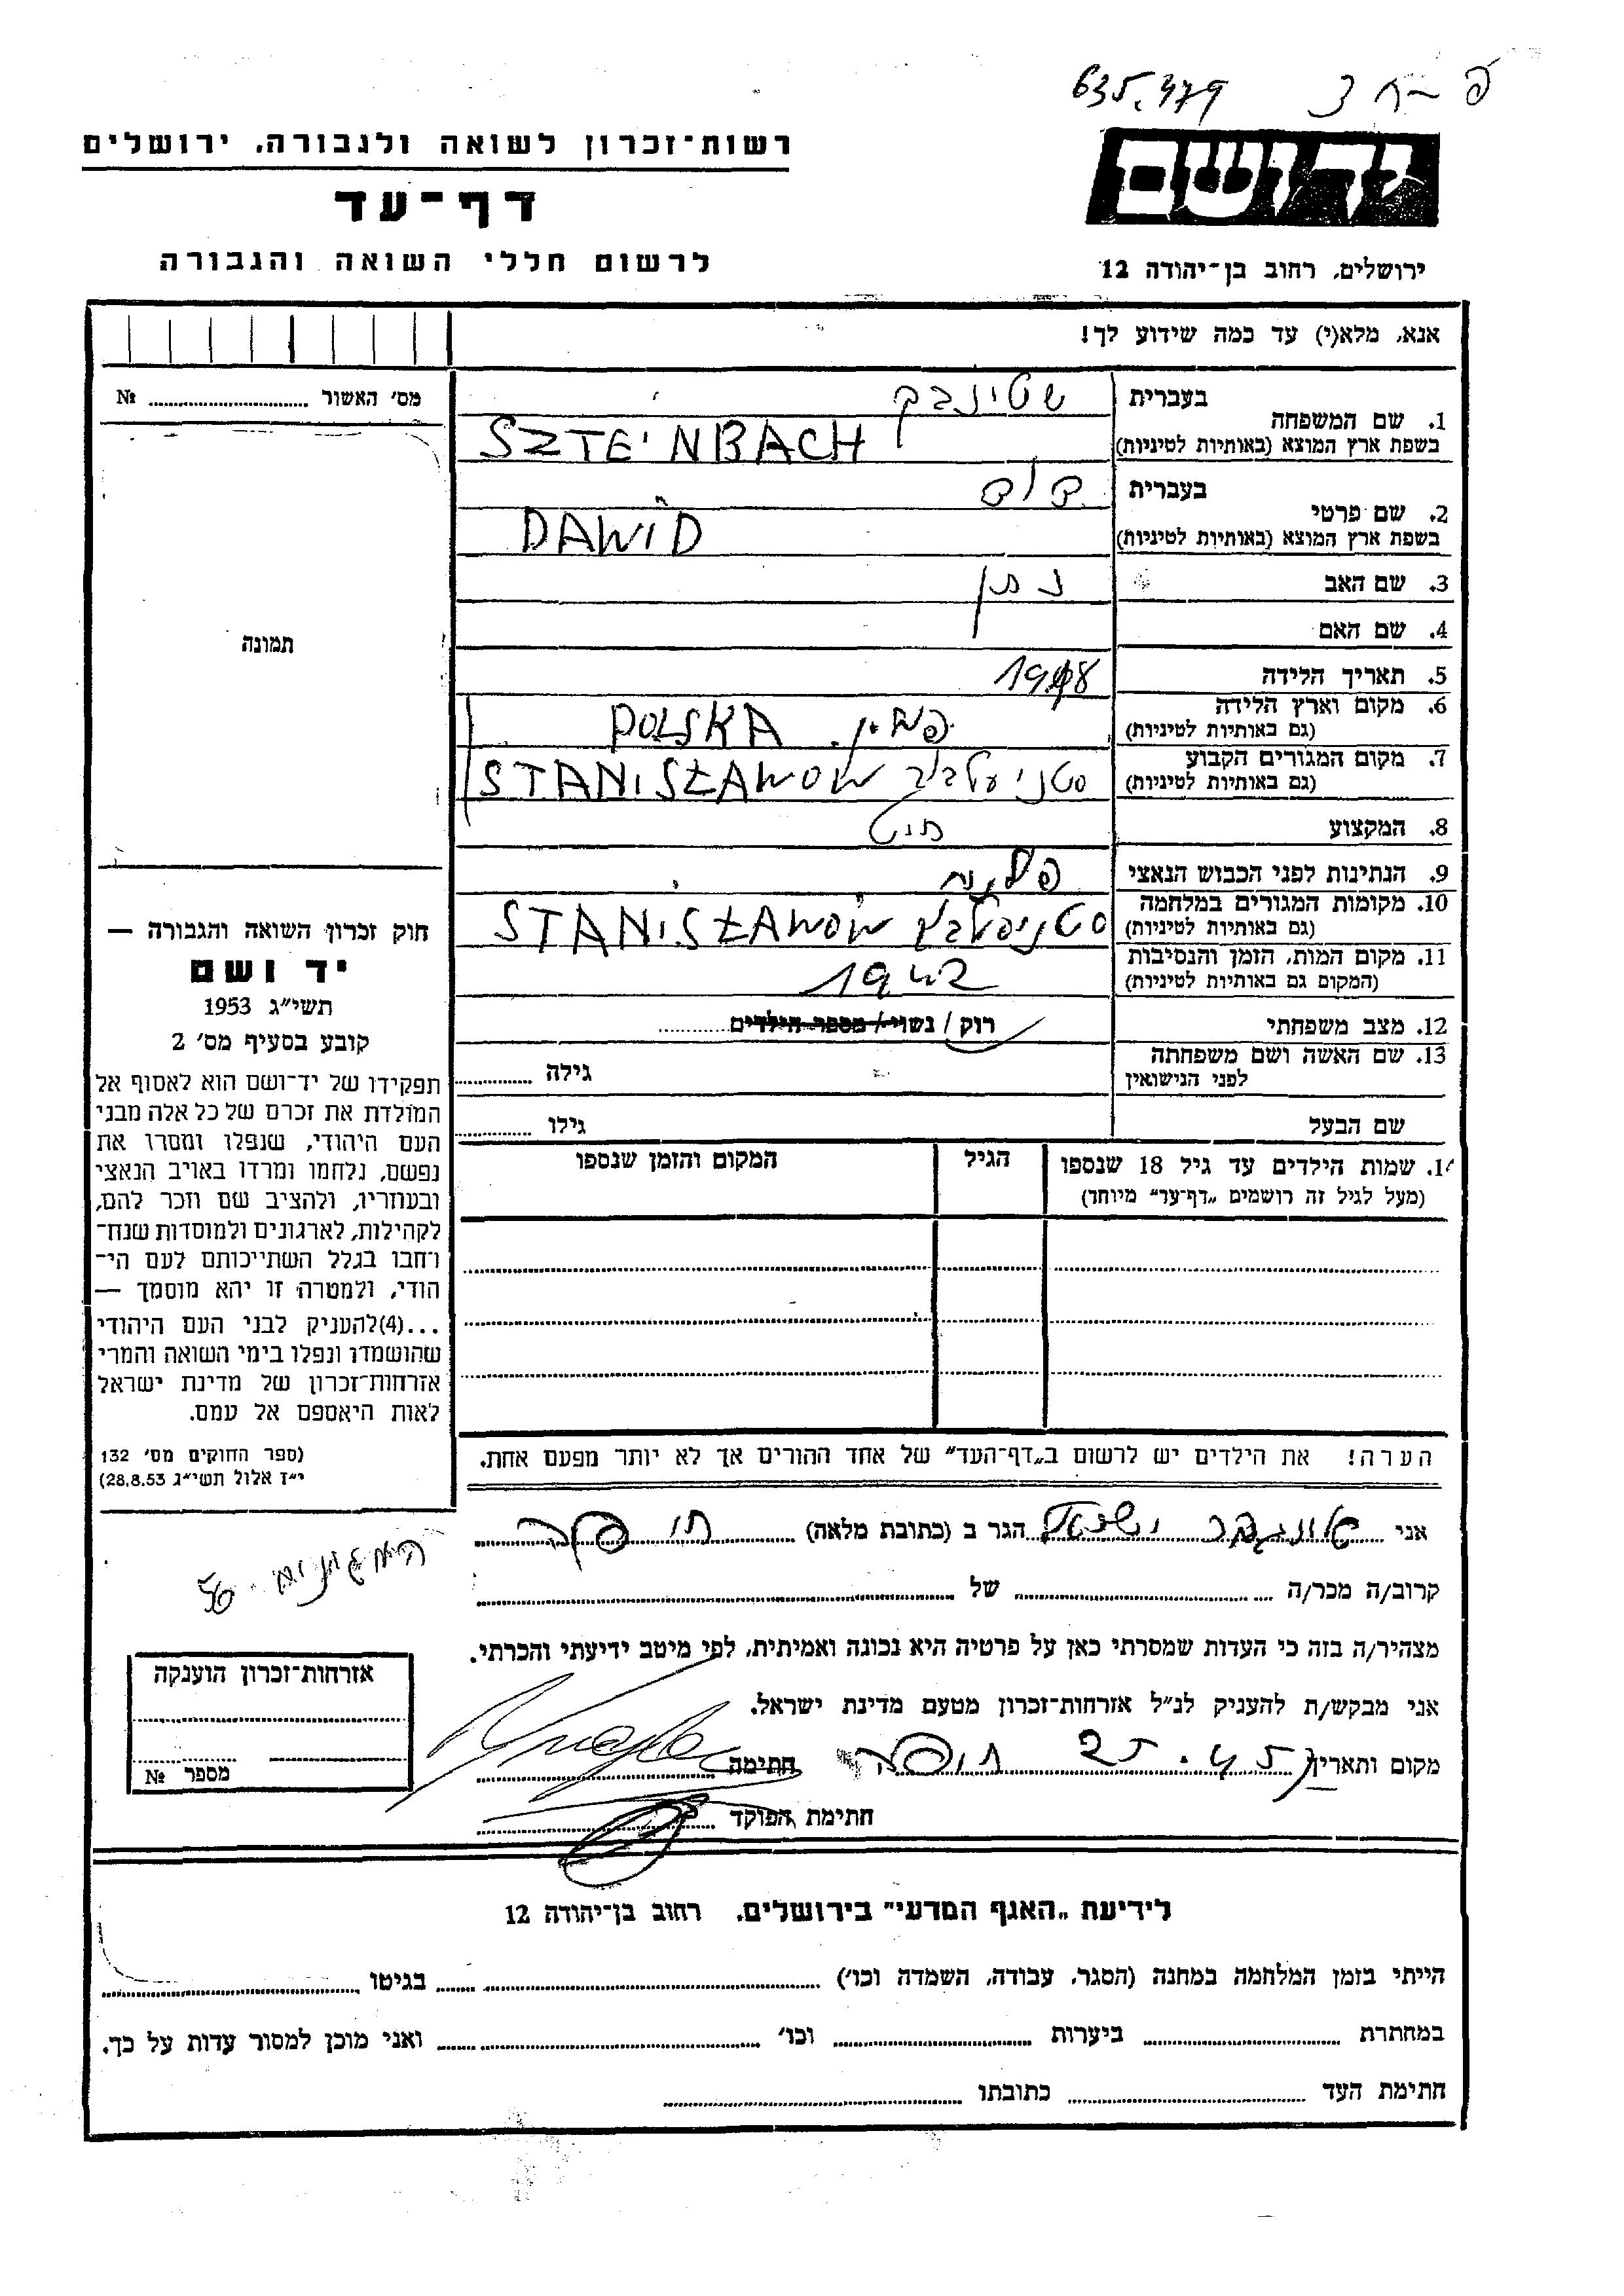 635.479
רשות־זכרון לשואה ולגבורה, ירושלים
דף־עד
לרשום חללי השואה והגבורה
יד ושם
ירושלים, רחוב בן־יהודה 12
אנא, מלא(י) עד כמה שידוע לך!
מס׳ האשור № 
תמונה
בעברית שטינבך
1. שם המשפחה
בשפת ארץ המוצא (באותיות לטיניות) SZTEINBACH
בעברית דוד
2. שם פרטי
בשפת ארץ המוצא (באותיות לטיניות) DAWID
3. שם האב נתן
4. שם האם
5. תאריך הלידה
6. מקום וארץ הלידה
(גם באותיות לטיניות) פולין. POLSKA
7. מקום המגורים הקבוע
(גם באותיות לטיניות) STANISŁAWOW
8. המקצוע חיט
9. הנתינות לפני הכבוש הנאצי
10. מקומות המגורים במלחמה
(גם באותיות לטיניות) STANISŁAWOW
11. מקום המות, הזמן והנסיבות
(המקום גם באותיות לטיניות) 1942
12. מצב משפחתי רוק / נשוי / מספר הילדים
13. שם האשה ושם משפחתה
לפני הנישואין גילה
שם הבעל גילו
14. שמות הילדים עד גיל 18 שנספו הגיל המקום והזמן שנספו
(מעל לגיל זה רושמים „דף־עד״ מיוחד)
הערה! את הילדים יש לרשום ב„דף־העד״ של אחד ההורים אך לא יותר מפעם אחת.
חוק זכרון השואה והגבורה —
יד ושם
תשי״ג 1953
קובע בסעיף מס׳ 2
תפקידו של יד־ושם הוא לאסוף אל
המולדת את זכרם של כל אלה מבני
העם היהודי, שנפלו ומסרו את
נפשם, נלחמו ומרדו באויב הנאצי
ובעוזריו, ולהציב שם וזכר להם,
לקהילות, לארגונים ולמוסדות שנח־
רבו בגלל השתייכותם לעם הי־
הודי, ולמטרה זו יהא מוסמך —
...(4)להעניק לבני העם היהודי
שהושמדו ונפלו בימי השואה והמרי
אזרחות־זכרון של מדינת ישראל
לאות היאספם אל עמם.
(ספר החוקים מס׳ 132
י״ז אלול תשי״ג 28.8.53)
אני הגר ב (כתובת מלאה) חיפה
קרוב/ה מכר/ה של
מצהיר/ה בזה כי העדות שמסרתי כאן על פרטיה היא נכונה ואמיתית, לפי מיטב ידיעתי והכרתי.
אני מבקש/ת להעניק לנ״ל אזרחות־זכרון מטעם מדינת ישראל.
מקום ותאריך חיפה חתימה
חתימת הפוקד
אזרחות־זכרון הוענקה
מספר №
לידיעת „האגף המדעי״ בירושלים, רחוב בן־יהודה 12
הייתי בזמן המלחמה במחנה (הסגר, עבודה, השמדה וכו׳) בגיטו
במחתרת ביערות וכו׳ ואני מוכן למסור עדות על כך.
חתימת העד כתובתו